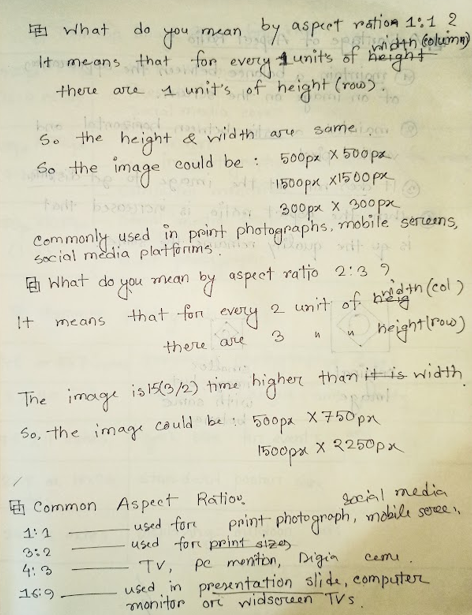 What do you mean by aspect ration 1:1 ?
It means that for every 1 units of width (column)
there are 1 unit's of height (row).
So the height & width are same.
So the image could be : 500px X 500px
1500px X 1500px
300px X 300px
commonly used in print photographs, mobile screens,
social media platforms.
What do you mean by aspect ratio 2:3 ?
It means that for every 2 unit of width (col)
there are 3 " " height (row)
The image is 1.5 (3/2) time higher than it is width.
So, the image could be : 500px X 750px
1500px X 2250px
Common Aspect Ratio.
social media
1:1 used for print photograph, mobile scree.,
3:2 used for print sizes
4:3 TV, pc monition, Digia came.
16:9 used in presentation slide, computer
monitor or widscreen TVs.